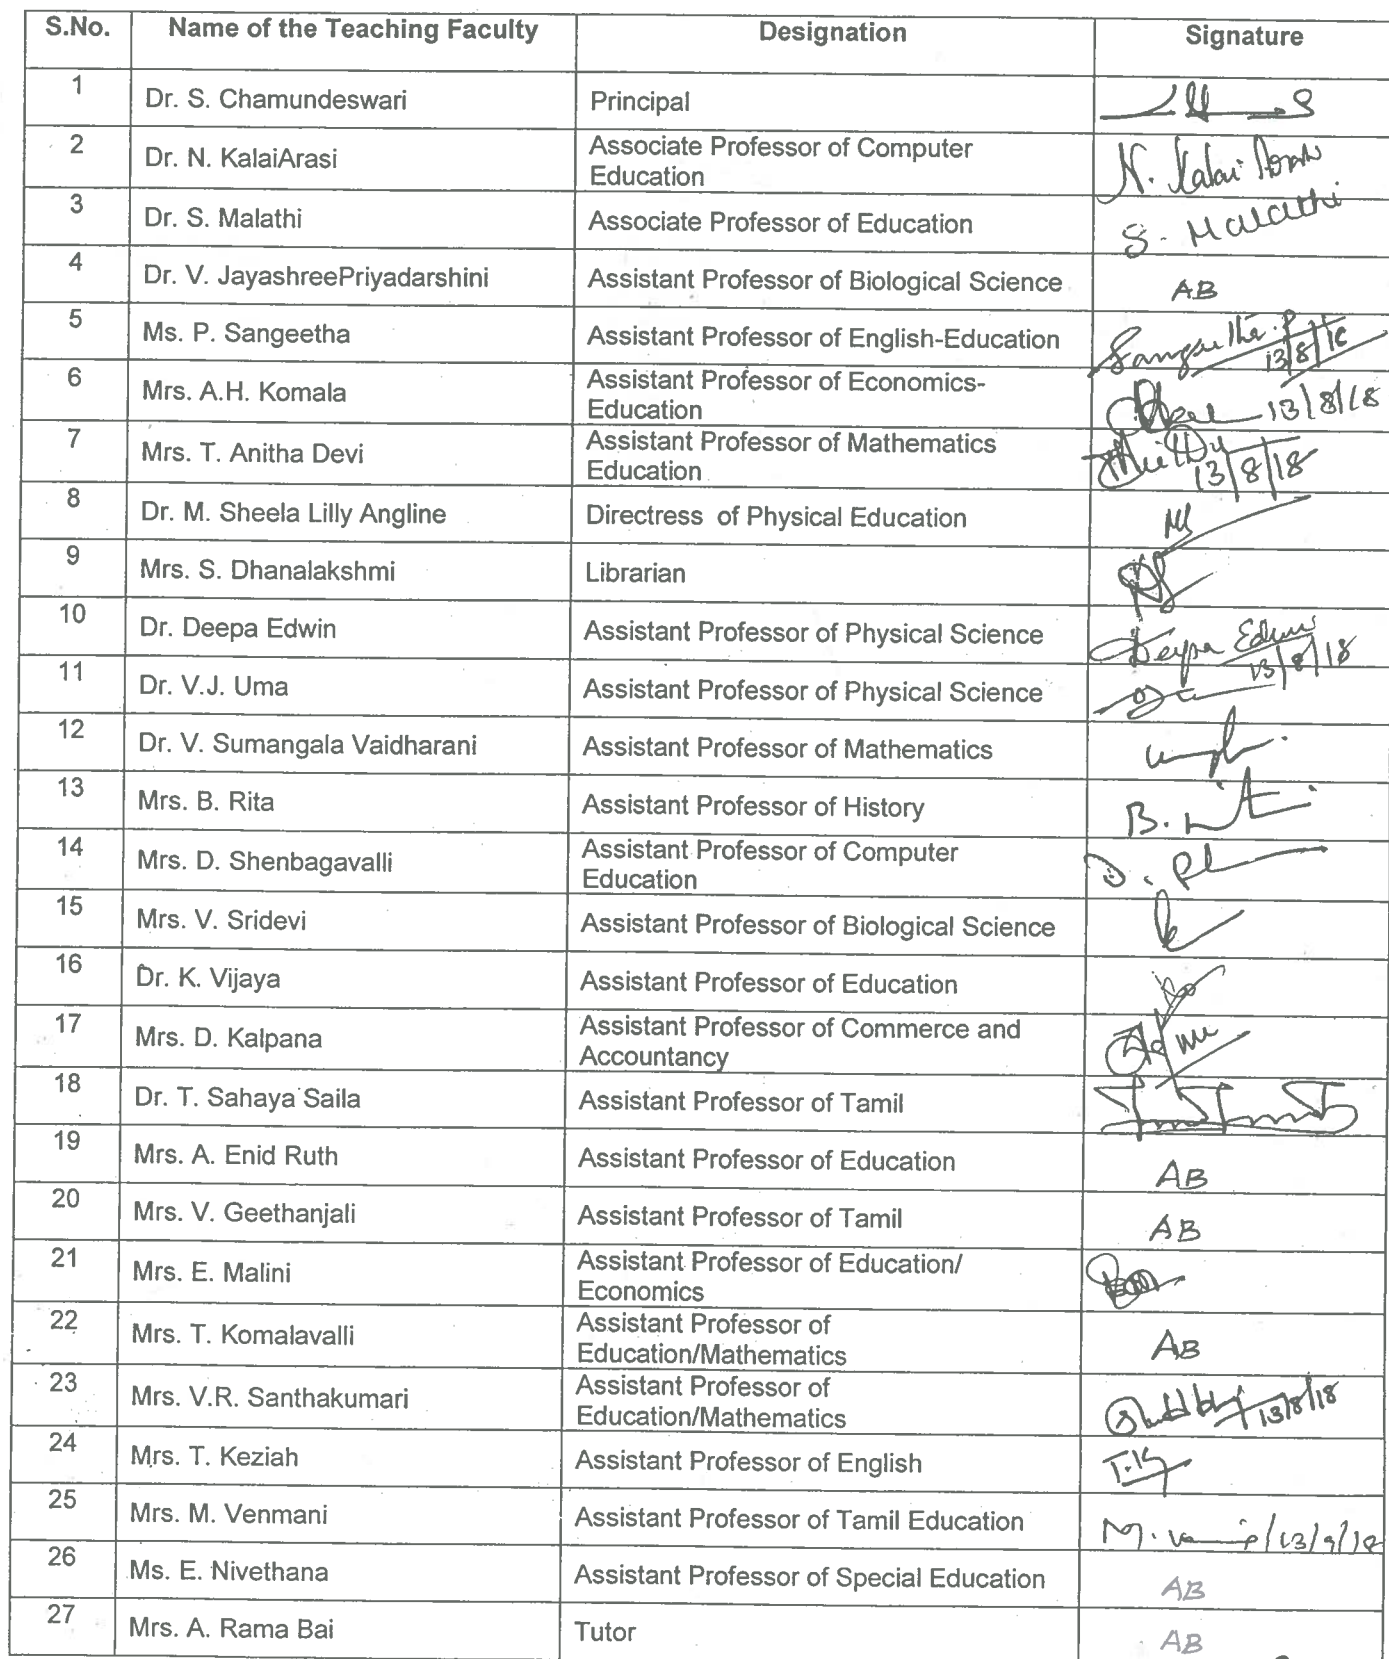 S.No. Name of the Teaching Faculty Designation Signature
1 Dr. S. Chamundeswari Principal
2 Dr. N. KalaiArasi Associate Professor of Computer
Education N. Kalai Arasi
3 Dr. S. Malathi Associate Professor of Education S. Malathi
4 Dr. V. JayashreePriyadarshini Assistant Professor of Biological Science AB
5 Ms. P. Sangeetha Assistant Professor of English-Education Sangeetha. P
13/8/18
6 Mrs. A.H. Komala Assistant Professor of Economics-
Education 13/8/18
7 Mrs. T. Anitha Devi Assistant Professor of Mathematics
Education 13/8/18
8 Dr. M. Sheela Lilly Angline Directress of Physical Education
9 Mrs. S. Dhanalakshmi Librarian
10 Dr. Deepa Edwin Assistant Professor of Physical Science Deepa Edwin
13/8/18
11 Dr. V.J. Uma Assistant Professor of Physical Science
12 Dr. V. Sumangala Vaidharani Assistant Professor of Mathematics
13 Mrs. B. Rita Assistant Professor of History B.
14 Mrs. D. Shenbagavalli Assistant Professor of Computer
Education D.
15 Mrs. V. Sridevi Assistant Professor of Biological Science
16 Dr. K. Vijaya Assistant Professor of Education
17 Mrs. D. Kalpana Assistant Professor of Commerce and
Accountancy
18 Dr. T. Sahaya Saila Assistant Professor of Tamil
19 Mrs. A. Enid Ruth Assistant Professor of Education AB
20 Mrs. V. Geethanjali Assistant Professor of Tamil AB
21 Mrs. E. Malini Assistant Professor of Education/
Economics
22 Mrs. T. Komalavalli Assistant Professor of
Education/Mathematics AB
23 Mrs. V.R. Santhakumari Assistant Professor of
Education/Mathematics 13/8/18
24 Mrs. T. Keziah Assistant Professor of English
25 Mrs. M. Venmani Assistant Professor of Tamil Education M.
26 Ms. E. Nivethana Assistant Professor of Special Education AB
27 Mrs. A. Rama Bai Tutor AB